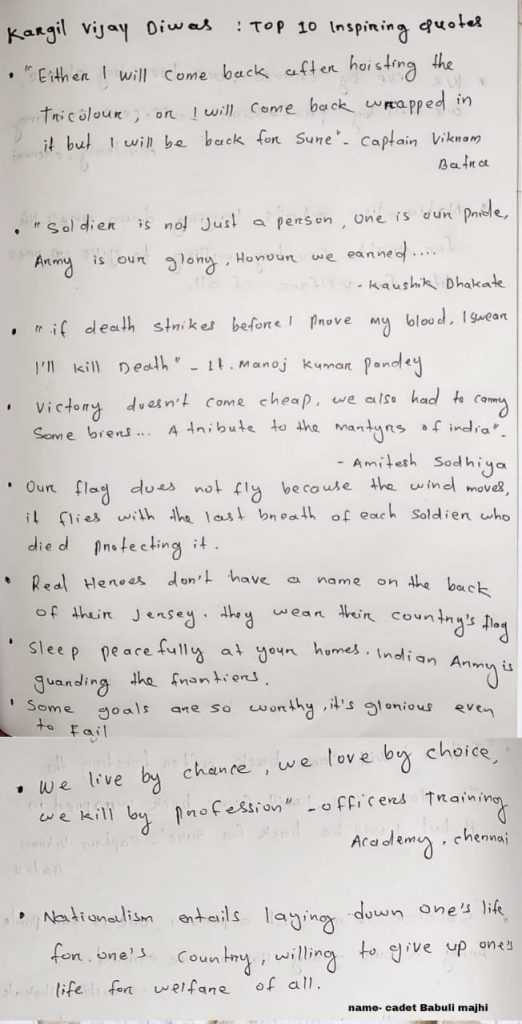 Kargil Vijay Diwas : Top 10 Inspiring Quotes
• "Either I will come back after hoisting the
tricolour, or I will come back wrapped in
it but I will be back for sure" - Captain Vikram
Batra
• "Soldier is not just a person, one is our pride,
Army is our glory, Honour we earned....
- Kaushik Dhakate
• "if death strikes before I prove my blood, I swear
I'll kill Death" - Lt. Manoj Kumar Pandey
• Victory doesn't come cheap, we also had to carry
Some biers... A tribute to the martyrs of india".
- Amitesh Sodhiya
• Our flag does not fly because the wind moves,
it flies with the last breath of each soldier who
died protecting it.
• Real Heroes don't have a name on the back
of their Jersey. they wear their country's flag
• Sleep peacefully at your homes. Indian Army is
guarding the frontiers.
• Some goals are so worthy, it's glorious even
to Fail
• We live by chance, we love by choice,
we kill by profession" - officers Training
Academy, chennai
• Nationalism entails laying down one's life
for one's country, willing to give up one's
life for welfare of all.
name- cadet Babuli majhi